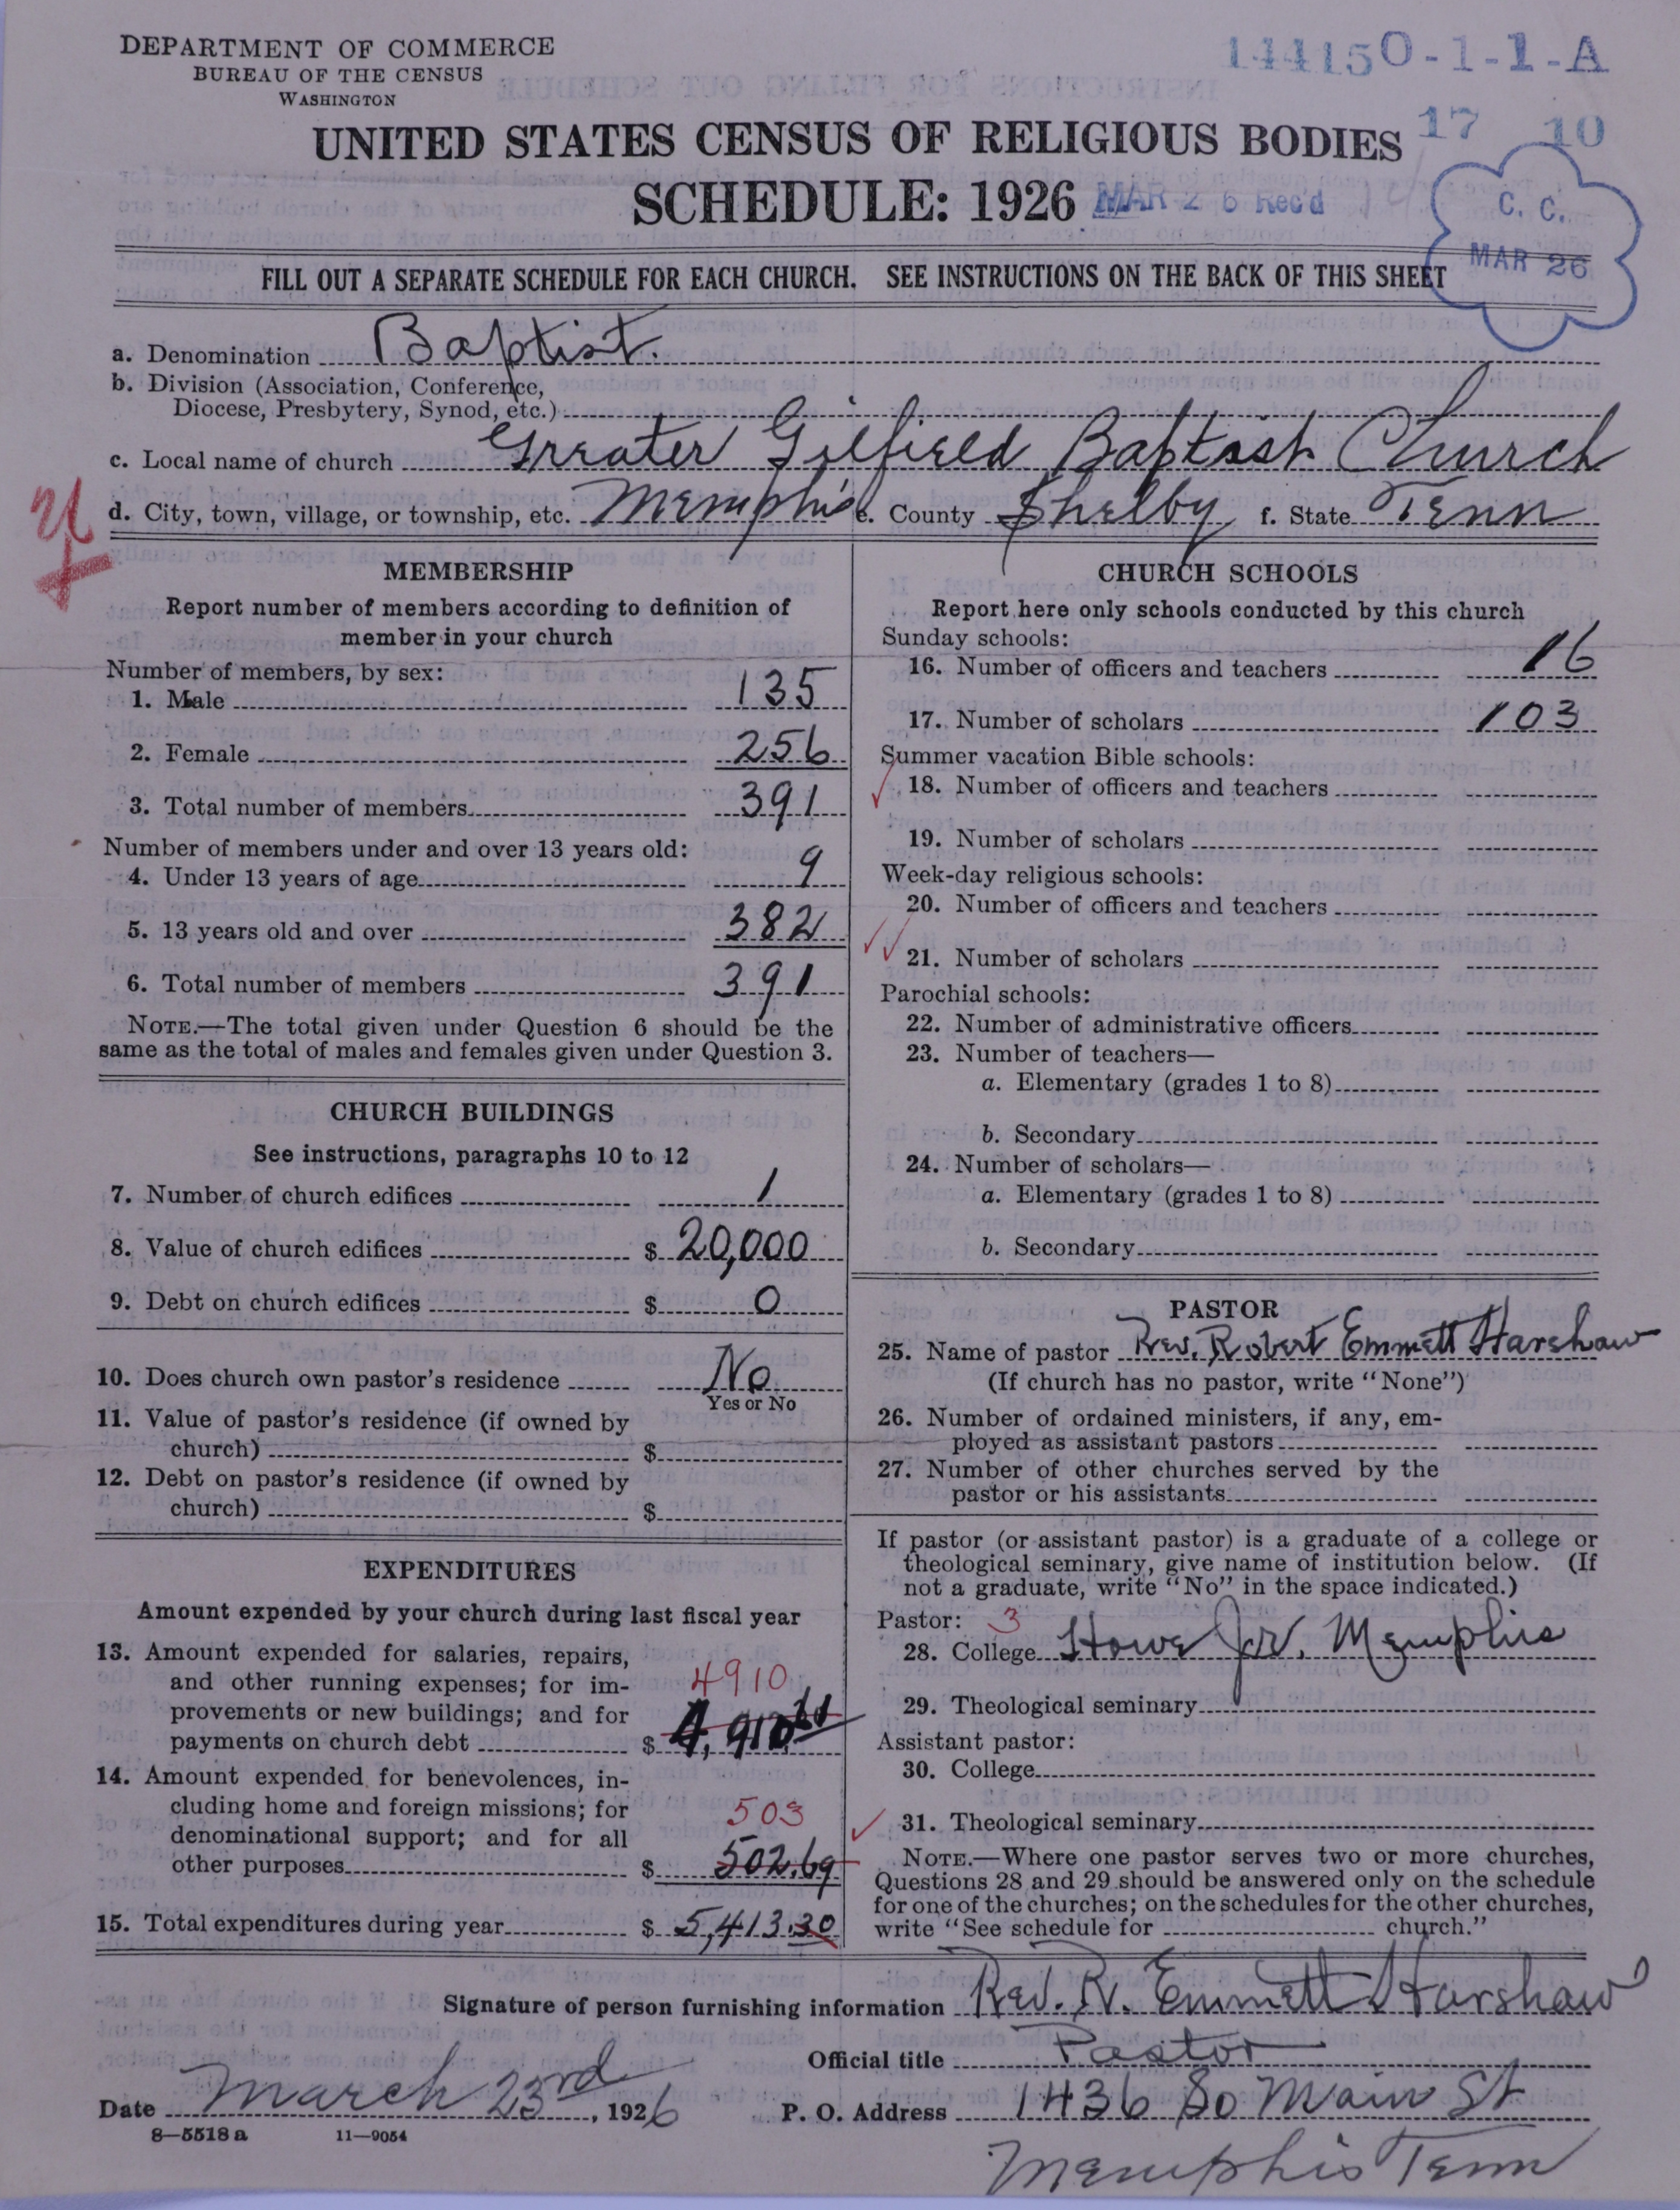 DEPARTMENT OF COMMERCE
BUREAU OF THE CENSUS
WASHINGTON
144150-1-1-A
17 10
UNITED STATES CENSUS OF RELIGIOUS BODIES
SCHEDULE: 1926
MAR 26 Rec'd
C. C.
MAR 26
FILL OUT A SEPARATE SCHEDULE FOR EACH CHURCH. SEE INSTRUCTIONS ON THE BACK OF THIS SHEET
a. Denomination Baptist.
b. Division (Association, Conference,
Diocese, Presbytery, Synod, etc.)
c. Local name of church Greater Gilfield Baptist Church
d. City, town, village, or township, etc. Memphis e. County Shelby f. State Tenn
MEMBERSHIP
Report number of members according to definition of
member in your church
Number of members, by sex:
1. Male 135
2. Female 256
3. Total number of members 391
Number of members under and over 13 years old:
4. Under 13 years of age 9
5. 13 years old and over 382
6. Total number of members 391
NOTE.—The total given under Question 6 should be the
same as the total of males and females given under Question 3.
CHURCH BUILDINGS
See instructions, paragraphs 10 to 12
7. Number of church edifices 1
8. Value of church edifices $ 20,000
9. Debt on church edifices $ 0
10. Does church own pastor's residence No
Yes or No
11. Value of pastor's residence (if owned by
church) $
12. Debt on pastor's residence (if owned by
church) $
EXPENDITURES
Amount expended by your church during last fiscal year
13. Amount expended for salaries, repairs,
and other running expenses; for im- 4910
provements or new buildings; and for
payments on church debt $ 4,910.61
14. Amount expended for benevolences, in-
cluding home and foreign missions; for 503
denominational support; and for all
other purposes $ 502.69
15. Total expenditures during year $ 5,413.30
CHURCH SCHOOLS
Report here only schools conducted by this church
Sunday schools:
16. Number of officers and teachers 16
17. Number of scholars 103
Summer vacation Bible schools:
18. Number of officers and teachers
19. Number of scholars
Week-day religious schools:
20. Number of officers and teachers
21. Number of scholars
Parochial schools:
22. Number of administrative officers
23. Number of teachers—
a. Elementary (grades 1 to 8)
b. Secondary
24. Number of scholars—
a. Elementary (grades 1 to 8)
b. Secondary
PASTOR
25. Name of pastor Rev. Robert Emmett Harshaw
(If church has no pastor, write "None")
26. Number of ordained ministers, if any, em-
ployed as assistant pastors
27. Number of other churches served by the
pastor or his assistants
If pastor (or assistant pastor) is a graduate of a college or
theological seminary, give name of institution below. (If
not a graduate, write "No" in the space indicated.)
Pastor: 3
28. College Howe Jr. Memphis
29. Theological seminary
Assistant pastor:
30. College
31. Theological seminary
NOTE.—Where one pastor serves two or more churches,
Questions 28 and 29 should be answered only on the schedule
for one of the churches; on the schedules for the other churches,
write "See schedule for church."
Signature of person furnishing information Rev. R. Emmett Harshaw
Official title Pastor
Date March 23rd, 1926 P. O. Address 1436 So Main St
8—5518 a 11—9054
Memphis Tenn